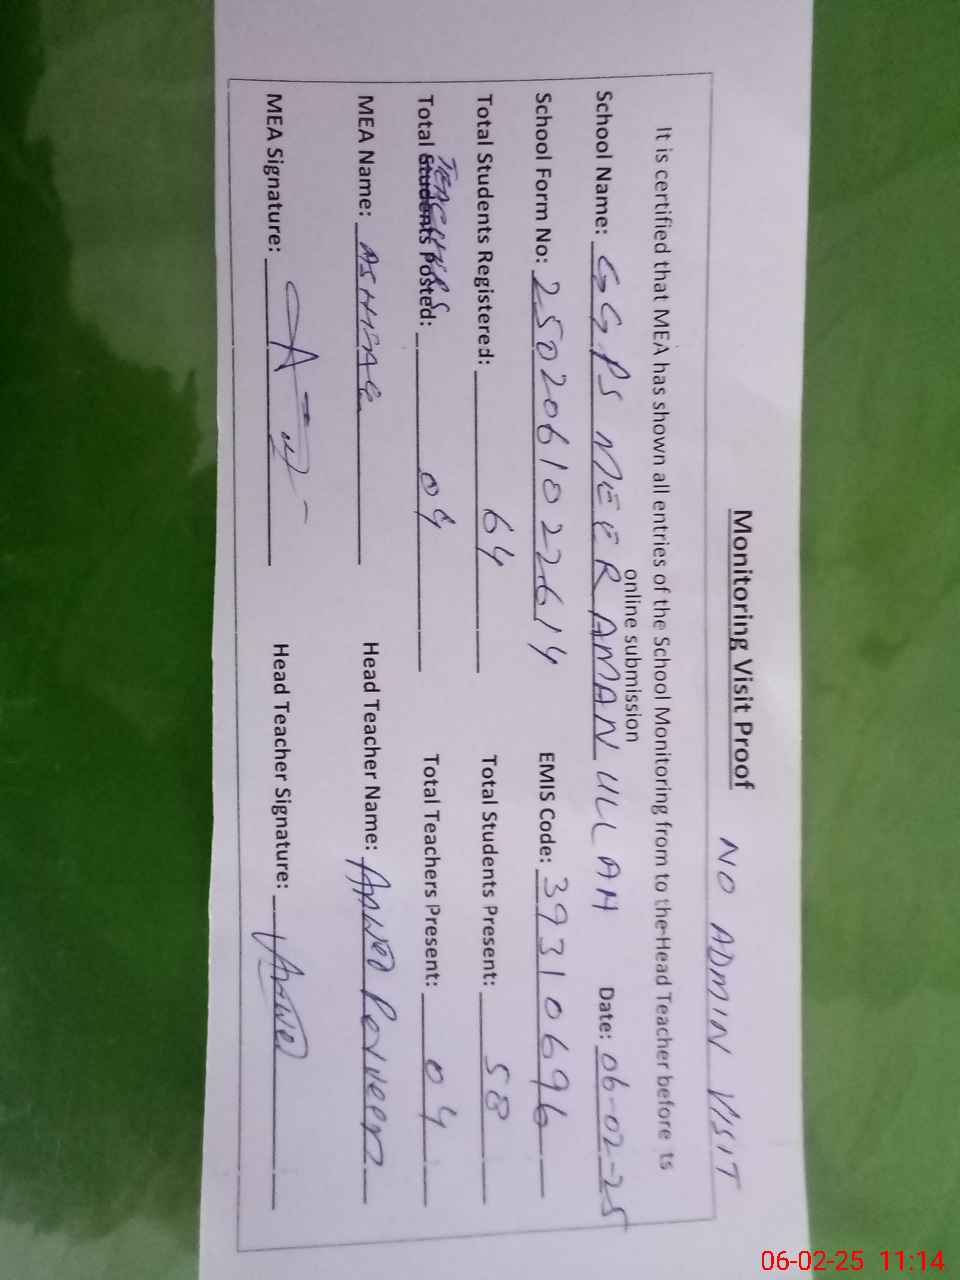 Monitoring Visit Proof NO ADMIN VISIT
It is certified that MEA has shown all entries of the School Monitoring from to the Head Teacher before ts
online submission
School Name: GGPS MEER AMAN ULLAH Date: 06-02-25
School Form No: 2502061022614 EMIS Code: 39310696
Total Students Registered: 64 Total Students Present: 58
Total Students TEACHERS Posted: 04 Total Teachers Present: 04
MEA Name: ASHFAQ Head Teacher Name: Perveen
MEA Signature: Head Teacher Signature:
06-02-25 11:14